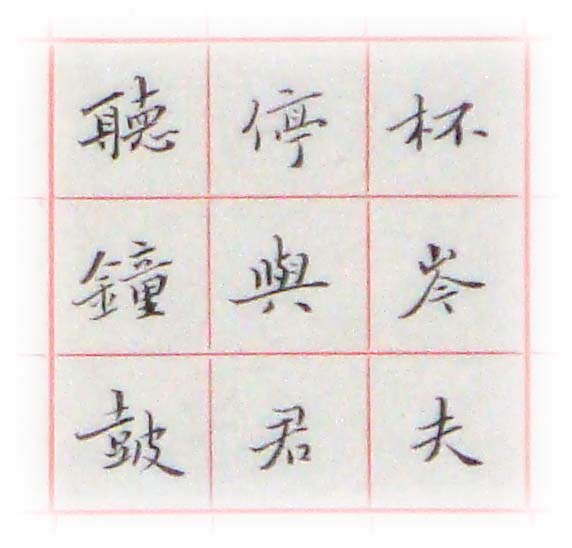 杯岑夫
停與君
聽鐘皷